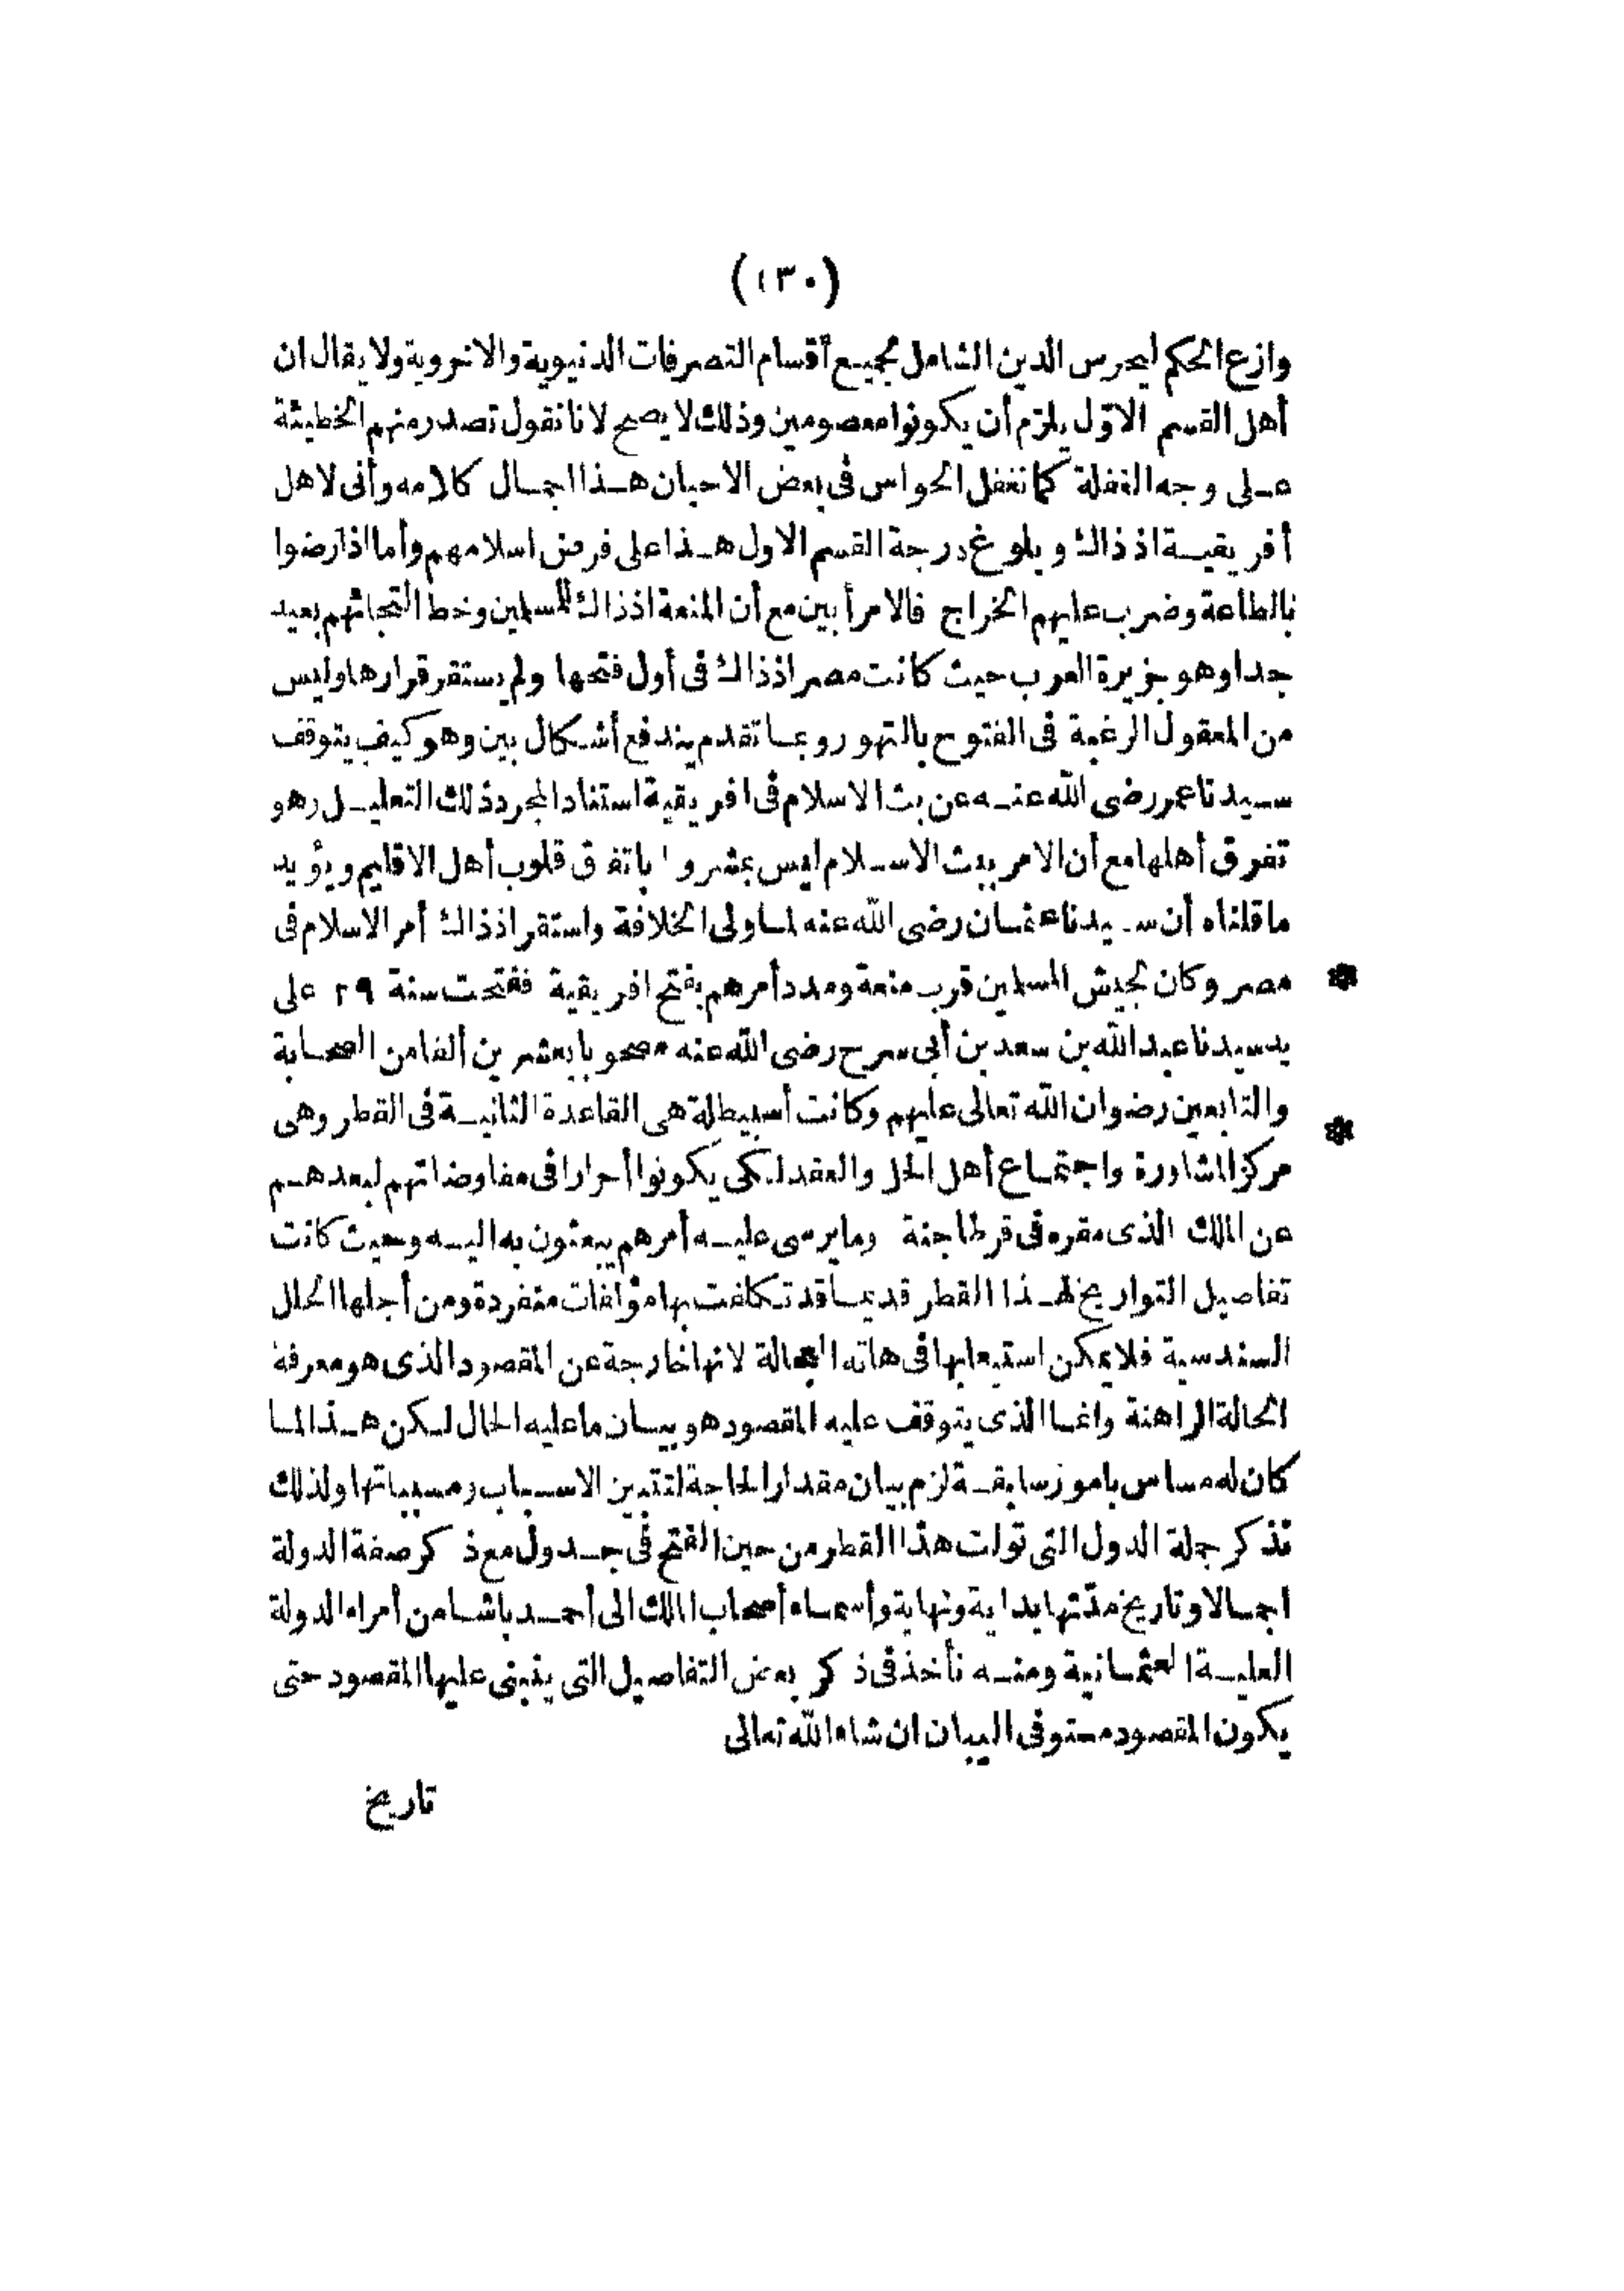 (١٣٠)
وازع الحكم ليحرس الدين الشامل لجميع أقسام التصرفات الدنيوية والاخروية ولا يقال ان
أهل القسم الاوّل يلزم أن يكونوا معصومين وذلك لا يصح لانا نقول تصدر منهم الخطيئة
على وجه الغفلة كما تغفل الحواس فى بعض الاحيان هذا اجمال كلامه وأنى لاهل
أفريقية اذ ذاك وبلوغ درجة القسم الاول هذا على فرض اسلامهم وأما اذا رضوا
بالطاعة وضرب عليهم الخراج فالامر أبين مع أن المنعة اذ ذاك للمسلمين وخط التجائهم بعيد
جدا وهو جزيرة العرب حيث كانت مصر اذ ذاك فى أول فتحها ولم يستقر قرارها وليس
من المعقول الرغبة فى الفتوح بالتهور وبما تقدم يندفع أشكال بين وهو كيف يتوقف
سيدنا عمر رضى الله عنه عن بث الاسلام فى افريقية استنادا لمجرد ذلك التعليل وهو
تفرق أهلها مع أن الامر ببث الاسلام ليس بمشروط باتفاق قلوب أهل الاقليم ويؤيد
ما قلناه أن سيدنا عثمان رضى الله عنه لما ولى الخلافة واستقر اذ ذاك أمر الاسلام فى
مصر وكان لجيش المسلمين قرب منعة ومدد أمرهم بفتح افريقية ففتحت سنة ٢٩ على
يد سيدنا عبد الله بن سعد بن أبى سرح رضى الله عنه مصحوبا بعشرين ألفا من الصحابة
والتابعين رضوان الله تعالى عليهم وكانت أسبيطلة هى القاعدة الثانية فى القطر وهى
مركز المشاورة واجتماع أهل الحل والعقد لكى يكونوا أحرارا فى مفاوضاتهم لبعدهم
عن الملك الذى مقره فى قرطاجنة وما يرسى عليه أمرهم يبعثون به اليه وحيث كانت
تفاصيل التواريخ لهذا القطر قديما قد تكلفت بها مؤلفات متفردة ومن أجلها الحلل
السندسية فلا يمكن استيعابها فى هاته العجالة لانها خارجة عن المقصود الذى هو معرفة
الحالة الراهنة وانما الذى يتوقف عليه المقصود هو بيان ما عليه الحال لكن هذا لما
كان له مساس بامور سابقة لزم بيان مقدار الحاجة لتتبين الاسباب ومسبباتها ولذلك
نذكر جملة الدول التى تولت هذا القطر من حين الفتح فى جدول مع ذكر صفة الدولة
اجمالا وتاريخ مدّتها بداية ونهاية وأسماء أصحاب الملك الى أحمد باشا من أمراء الدولة
العلية العثمانية ومنه نأخذ فى ذكر بعض التفاصيل التى ينبنى عليها المقصود حتى
يكون المقصود مستوفى البيان ان شاء الله تعالى
تاريخ